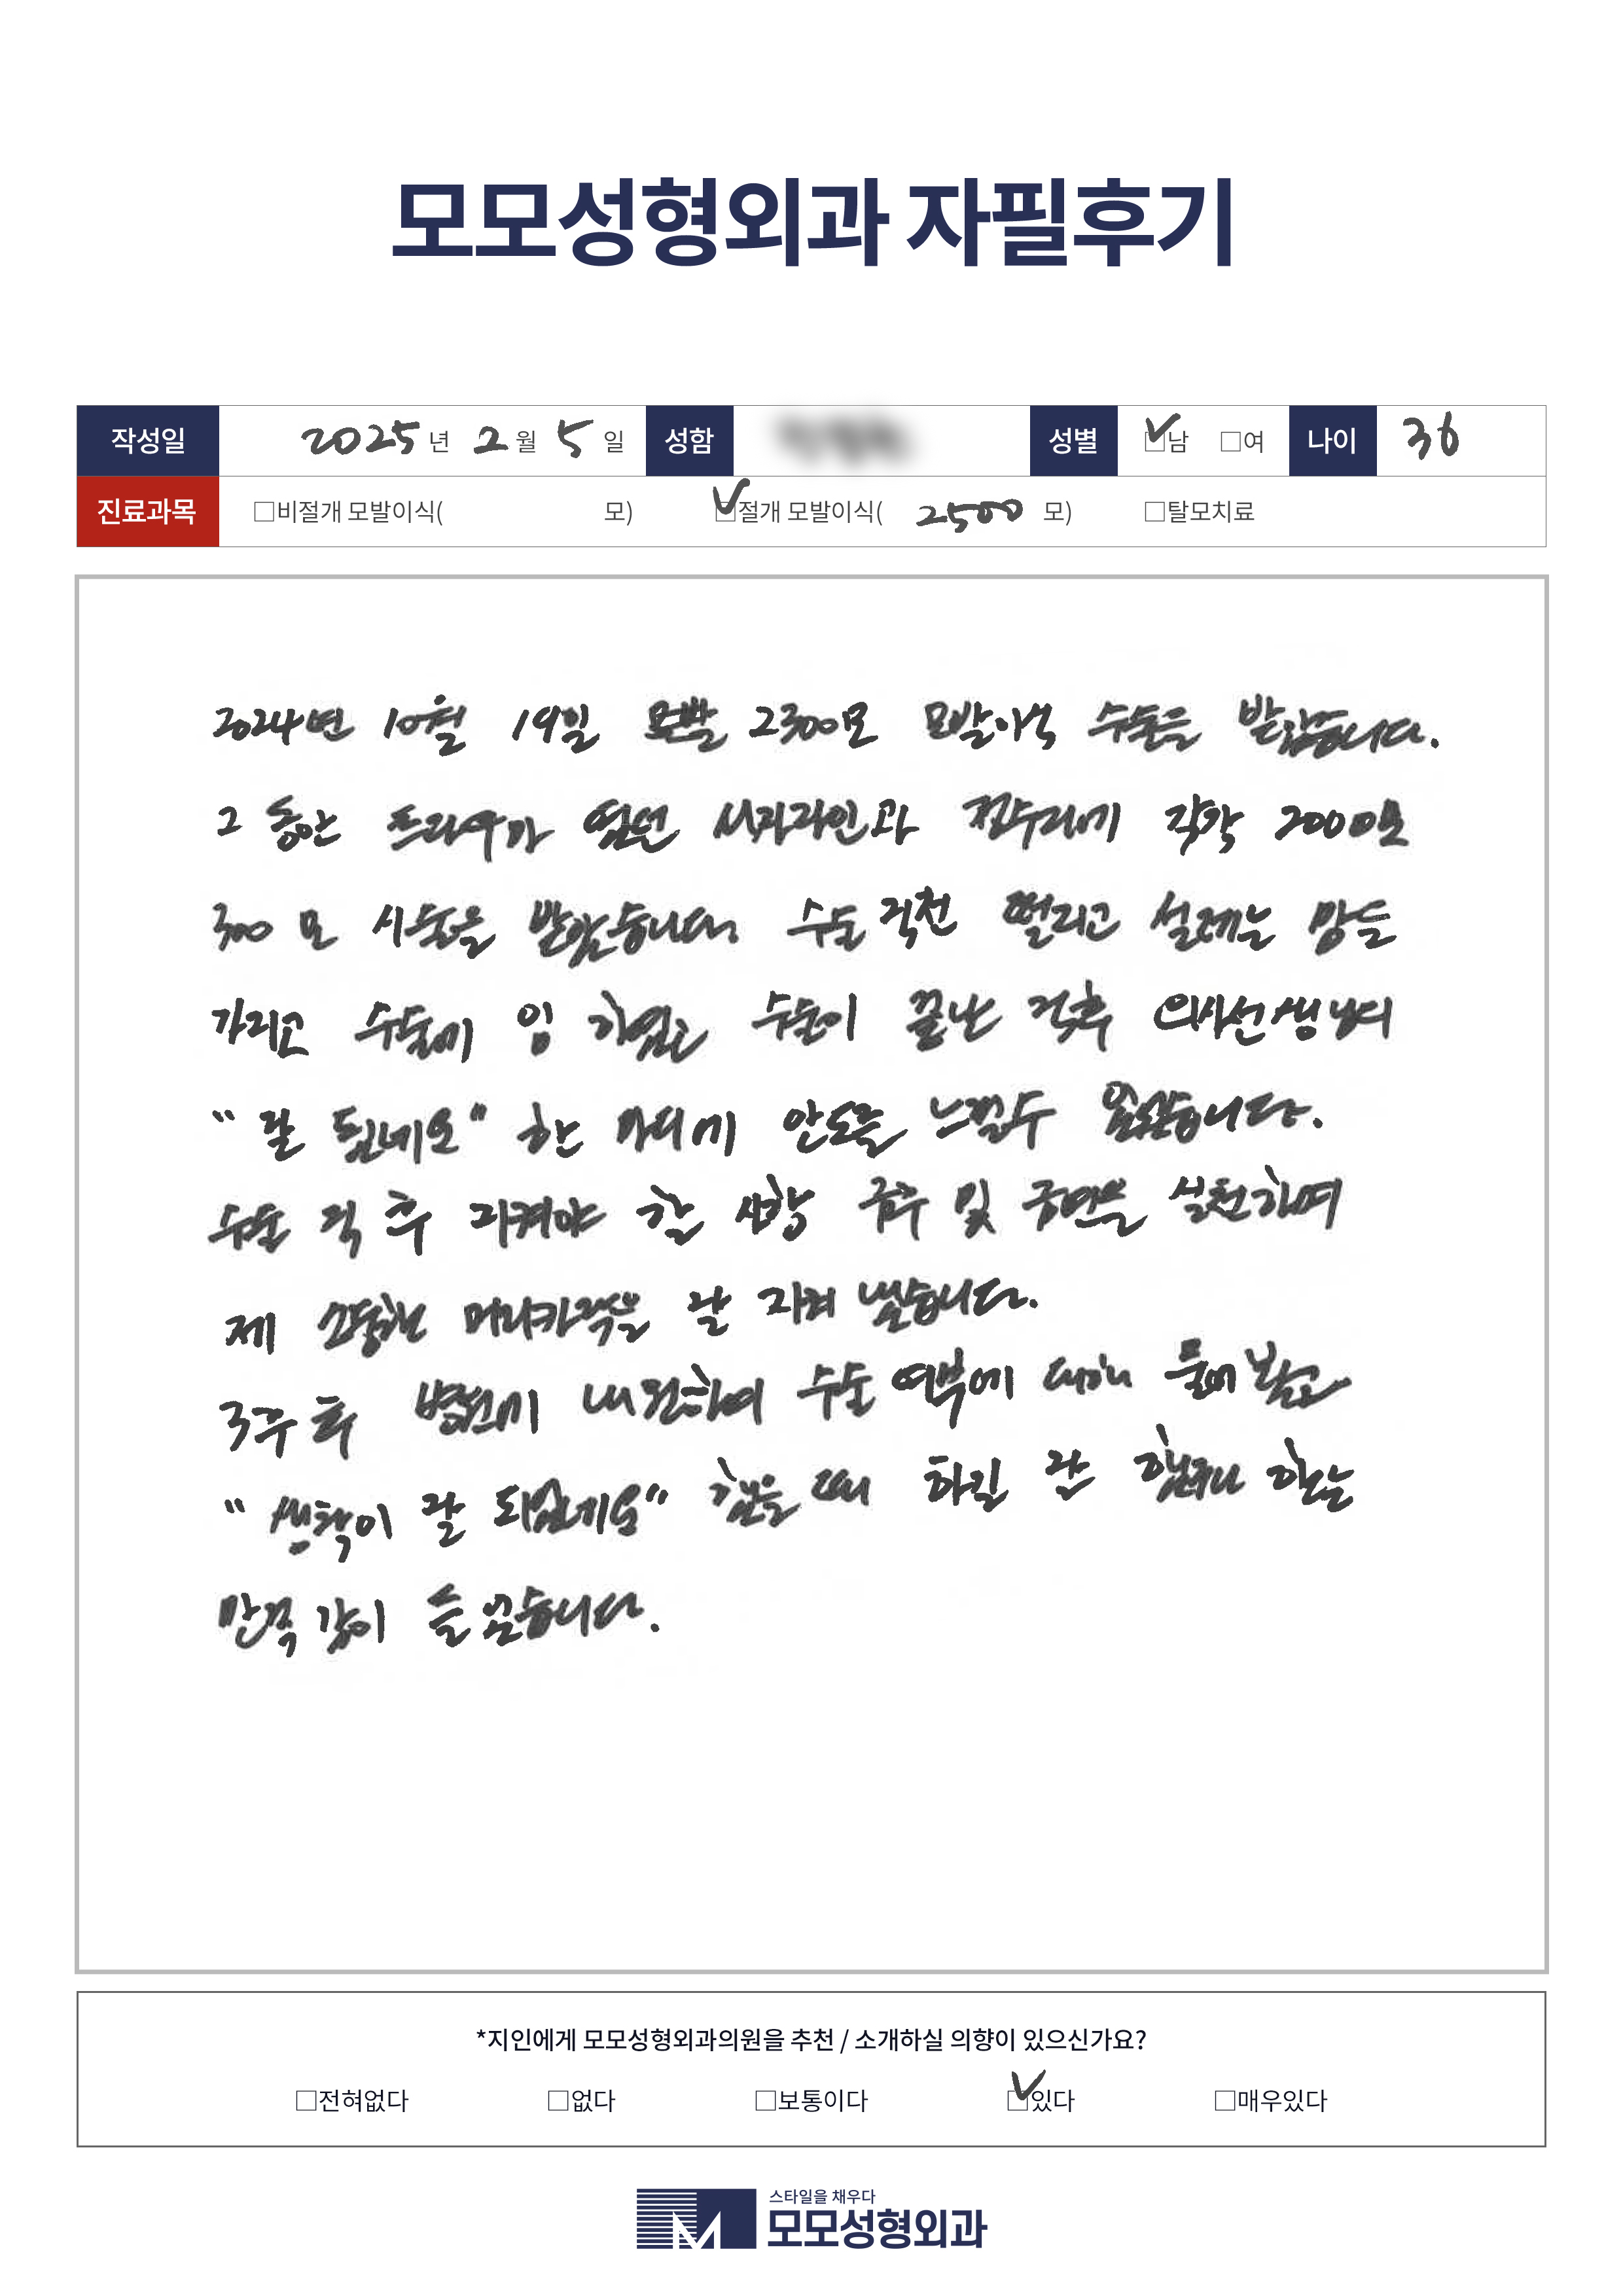 모모성형외과 자필후기
작성일 2025년 2월 5일 성함 성별 ☑남 □여 나이 36
진료과목 □비절개 모발이식( 모) ☑절개 모발이식( 2500 모) □탈모치료
2024년 10월 19일 모발 2300모 모발이식 수술을 받았습니다.
그 동안 트라우마 였던 헤어라인과 정수리에 각각 2000모
300 모 시술을 받았습니다. 수술 직전 떨리고 설레는 맘을
가지고 수술에 임 하였고 수술이 끝난 직후 의사선생님의
"잘 됬네요" 한 마디에 안도를 느낄수 있었습니다.
수술 직 후 지켜야 할 사항 금주 및 금연을 실천하며
제 소중한 머리카락을 잘 지켜 냈습니다.
3주 후 병원에 내원하여 수술 여부에 대해 물어 보았고
"생착이 잘 되었네요" 했을 때 하길 잘 했구나 하는
만족 감이 들 었습니다.
*지인에게 모모성형외과의원을 추천 / 소개하실 의향이 있으신가요?
□전혀없다 □없다 □보통이다 ☑있다 □매우있다
스타일을 채우다
모모성형외과